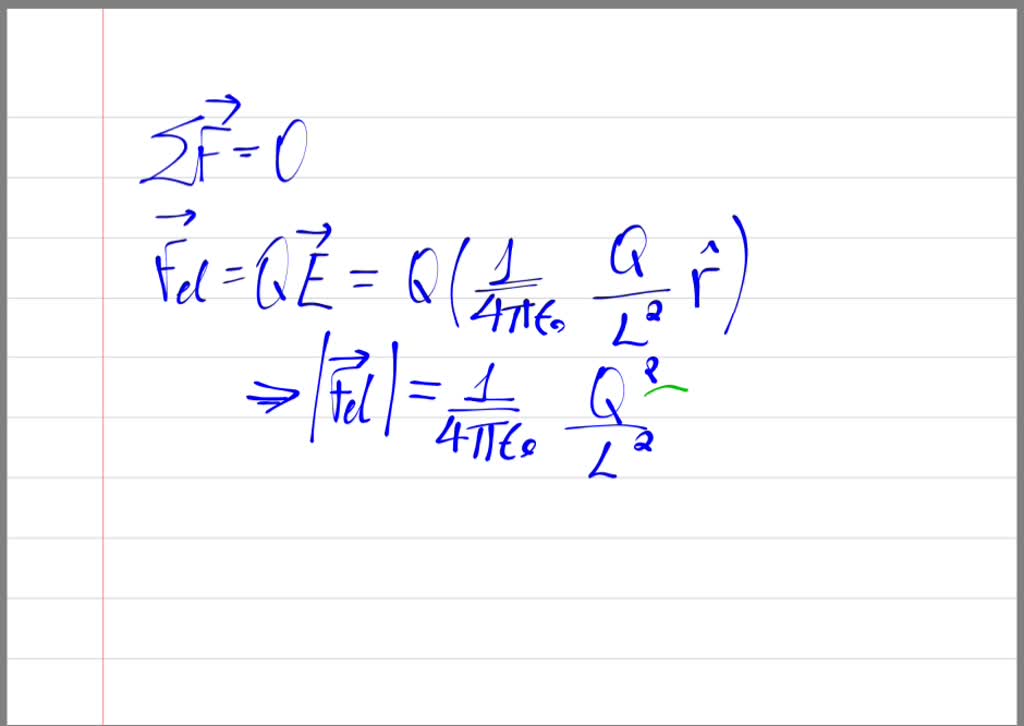 ∑F⃗ = 0
F⃗el = QE⃗ = Q(1/4πϵ₀ Q/L² r̂)
⇒ |F⃗el| = 1/4πϵ₀ Q²/L²